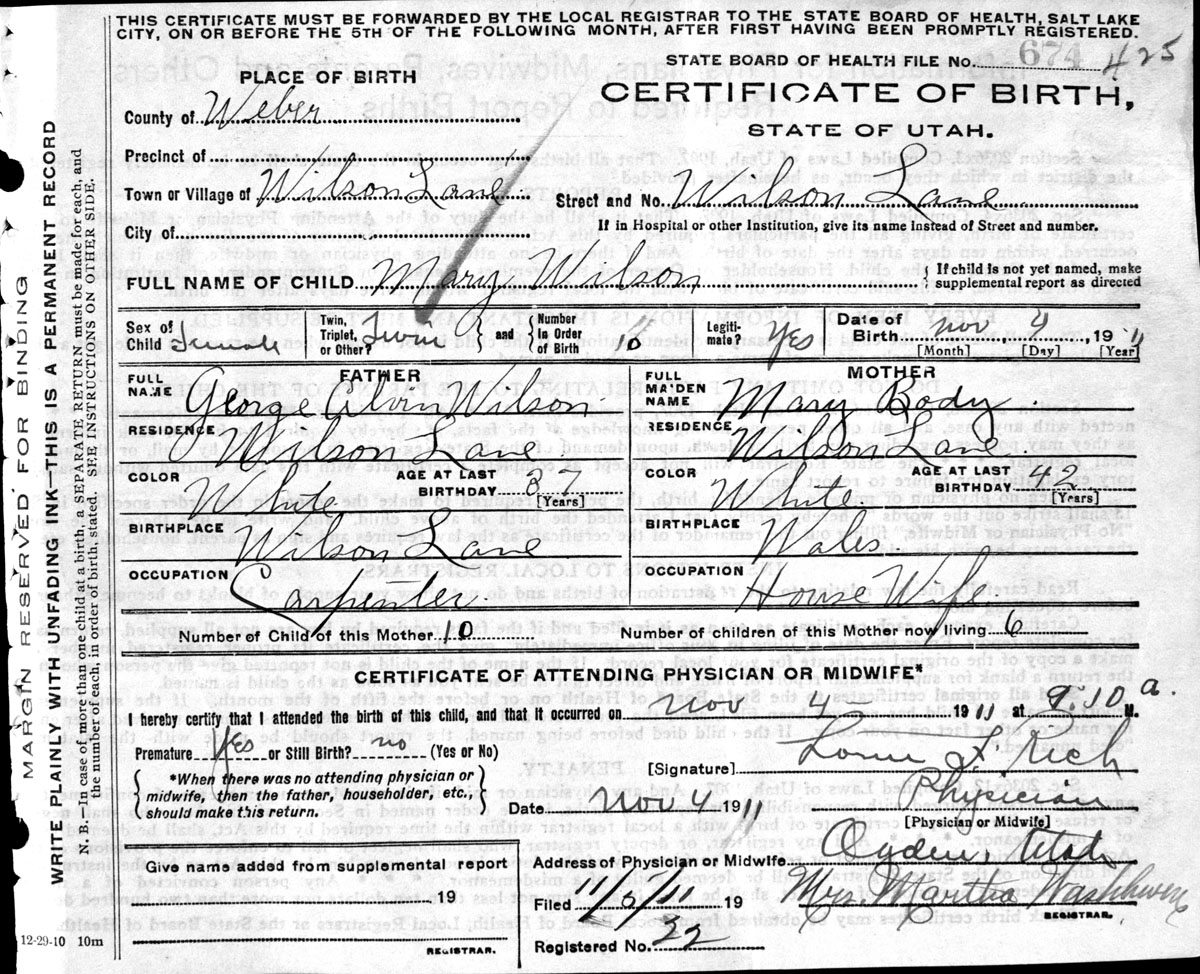 THIS CERTIFICATE MUST BE FORWARDED BY THE LOCAL REGISTRAR TO THE STATE BOARD OF HEALTH, SALT LAKE
CITY, ON OR BEFORE THE 5TH OF THE FOLLOWING MONTH, AFTER FIRST HAVING BEEN PROMPTLY REGISTERED.
STATE BOARD OF HEALTH FILE No. 674 425
PLACE OF BIRTH
CERTIFICATE OF BIRTH,
STATE OF UTAH.
County of Weber
Precinct of
Town or Village of Wilson Lane
Street and No. Wilson Lane
City of
If in Hospital or other Institution, give its name instead of Street and number.
FULL NAME OF CHILD Mary Wilson
If child is not yet named, make
supplemental report as directed
Sex of Child Female
Twin, Triplet, or Other? Twin
and Number in Order of Birth 10
Legitimate? Yes
Date of Birth Nov 4, 1911
[Month] [Day] [Year]
FATHER
FULL NAME George Alvin Wilson
RESIDENCE Wilson Lane
COLOR White
AGE AT LAST BIRTHDAY 37 [Years]
BIRTHPLACE Wilson Lane
OCCUPATION Carpenter
MOTHER
FULL MAIDEN NAME Mary Body
RESIDENCE Wilson Lane
COLOR White
AGE AT LAST BIRTHDAY 42 (Years)
BIRTHPLACE Wales
OCCUPATION House Wife
Number of Child of this Mother 10
Number of children of this Mother now living 6
CERTIFICATE OF ATTENDING PHYSICIAN OR MIDWIFE*
I hereby certify that I attended the birth of this child, and that it occurred on Nov 4 - 1911 at 9:10 a. M.
Premature Yes or Still Birth? no (Yes or No)
*When there was no attending physician or
midwife, then the father, householder, etc.,
should make this return.
[Signature] Rich
Physician
[Physician or Midwife]
Date Nov 4 1911
Give name added from supplemental report
19
REGISTRAR.
Address of Physician or Midwife Ogden, Utah
Filed 11/5/11 19
Mrs. Martha
REGISTRAR.
Registered No. 22
MARGIN RESERVED FOR BINDING
WRITE PLAINLY WITH UNFADING INK—THIS IS A PERMANENT RECORD
N. B.—In case of more than one child at a birth, a SEPARATE RETURN must be made for each, and
the number of each, in order of birth, stated. SEE INSTRUCTIONS ON OTHER SIDE.
12-29-10 10m